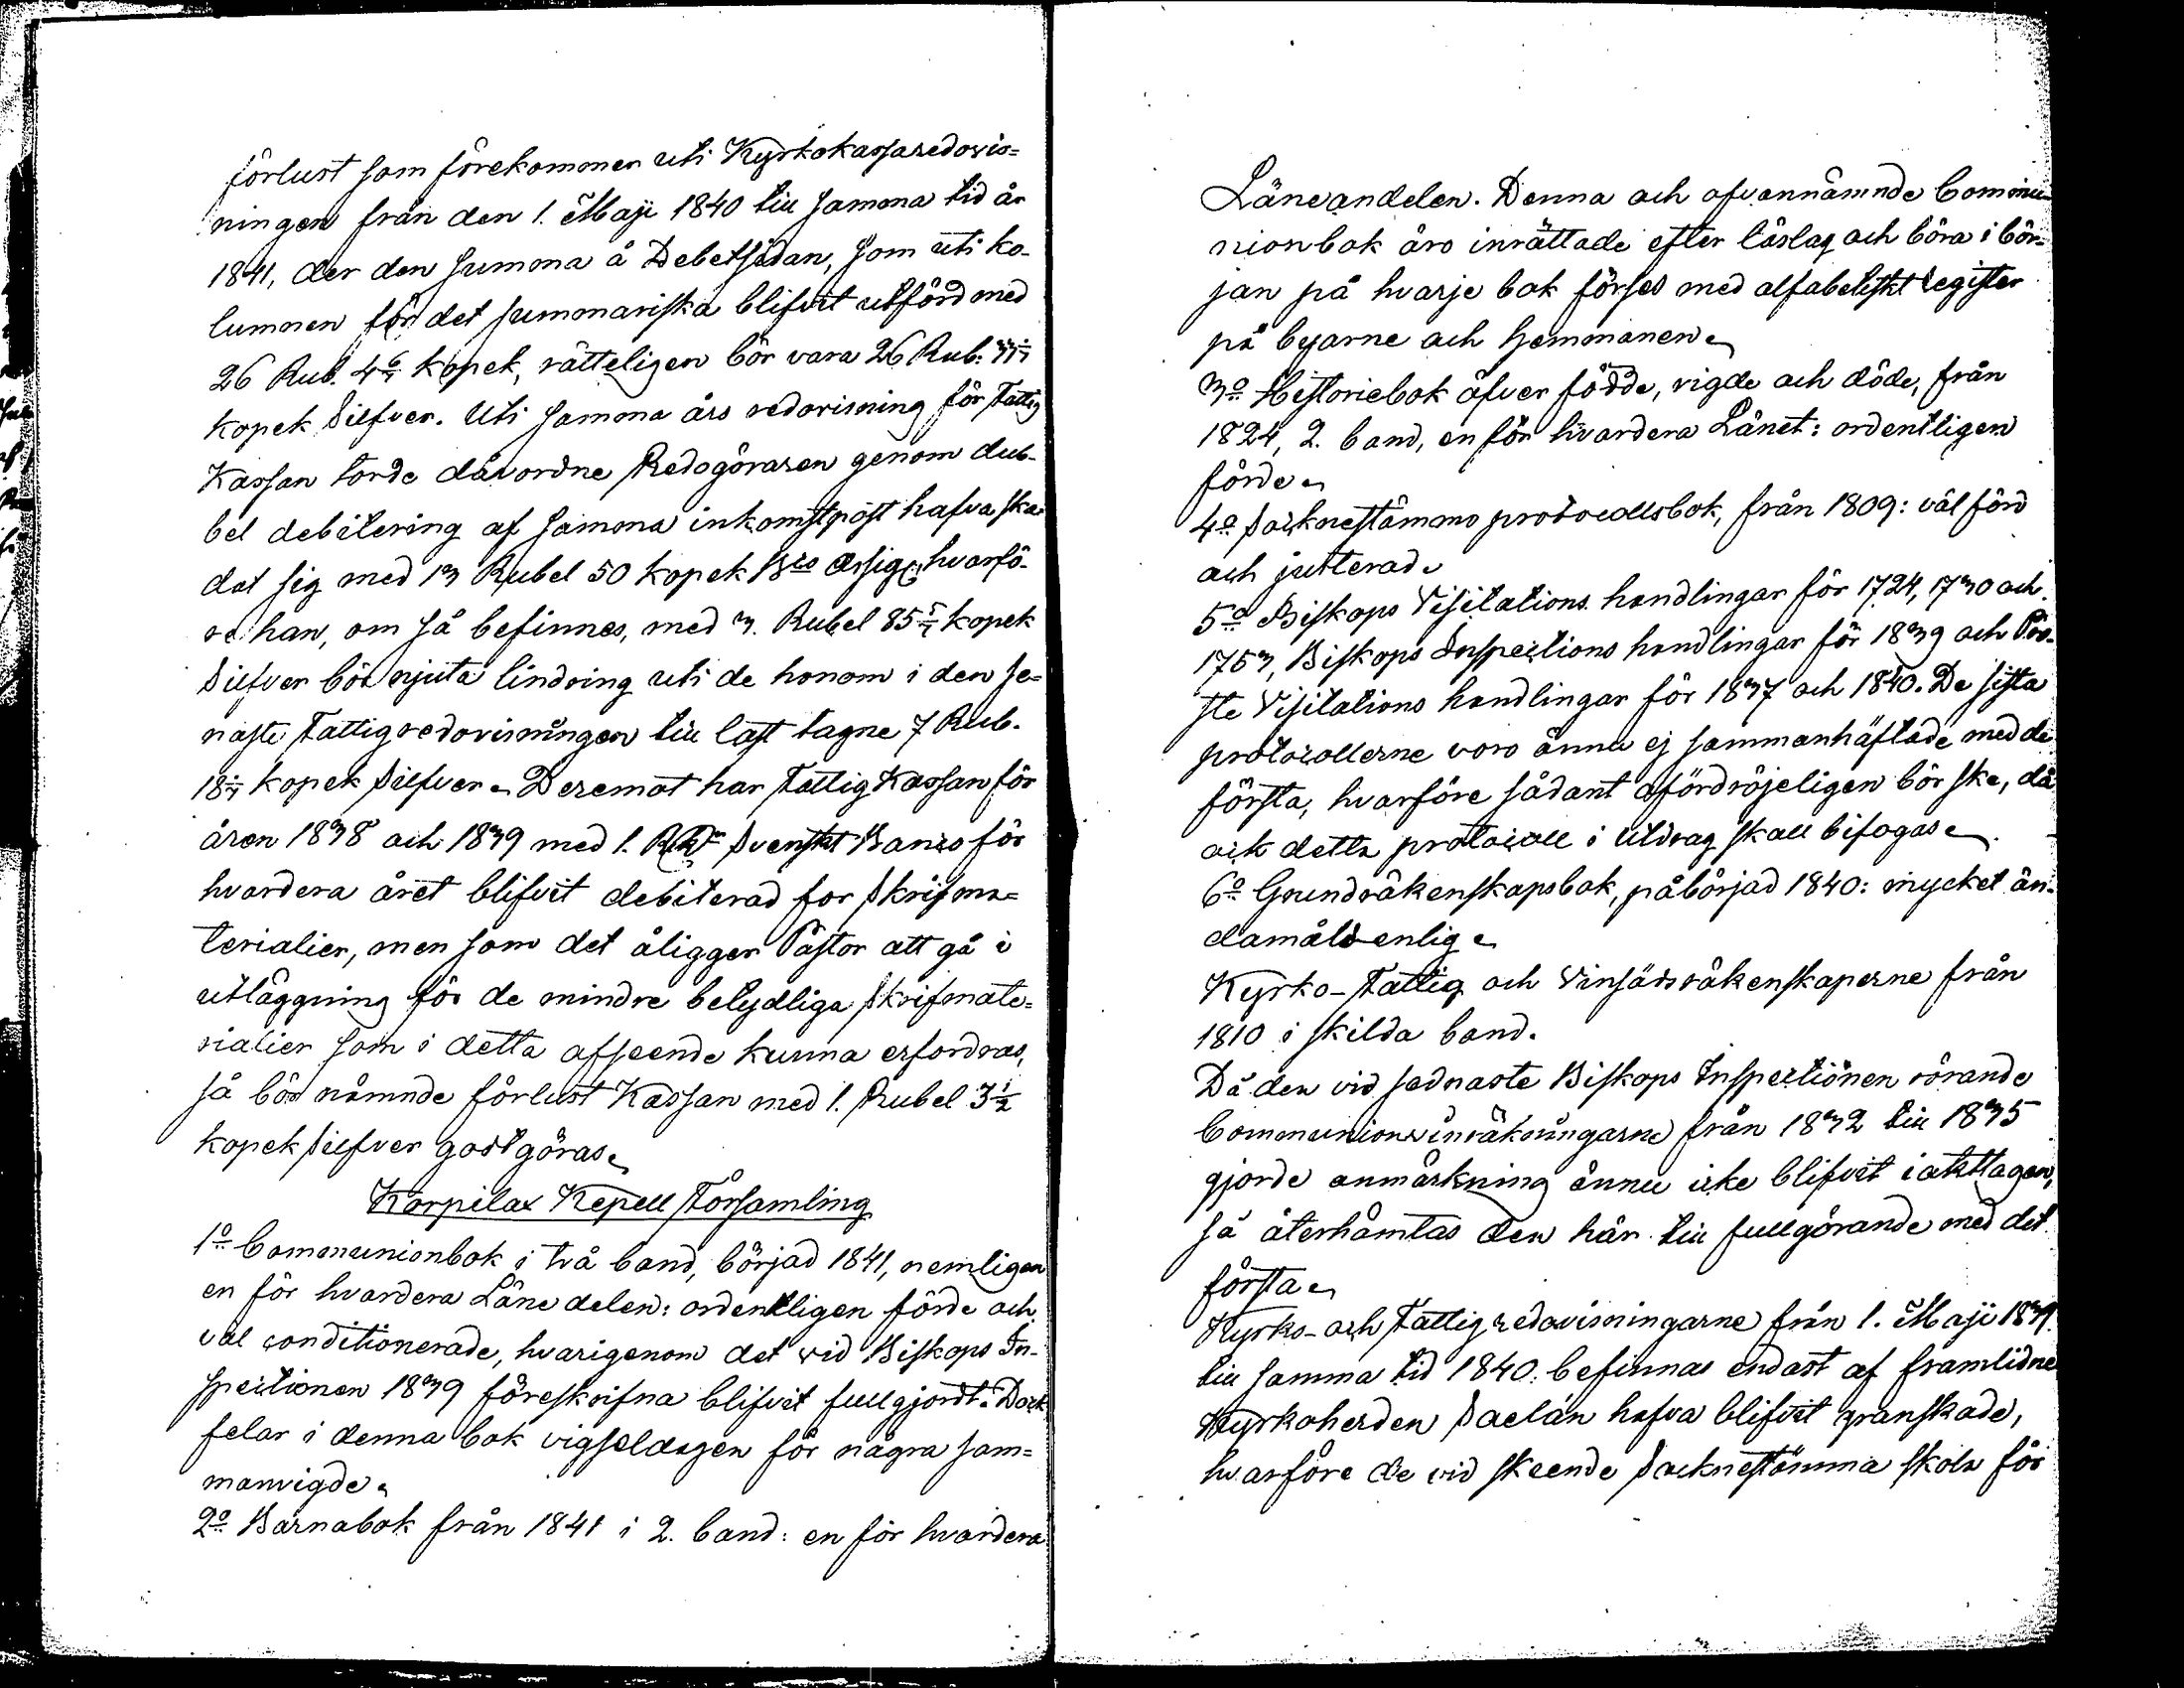 förlust som förekommer uti Kyrkokassaredovis=
ningen från den 1. Maji 1840 till samma tid år
1841, der den summa å Debetsidan, som uti ko-
lumnen för det summariska blifvit utförd med
26 Rub. 4 6/7 kopek, rätteligen bör vara 26 Rub.
kopek Silfver. Uti samma års redovisning för Fattig
Kassan torde dåvordne Redogöraren genom dub-
bel debitering af samma inkomstpost hafva ska-
dat sig med 13 Rubel 50 kopek Bco Assigr, hvarfö-
re han, om så befinnes, med 3. Rubel 85 5/7 kopek
Silfver bör njuta lindring uti de honom i den se-
naste Fattigredovisningen till last tagne 7 Rub.
18 4/7 kopek Silfver. Deremot har Fattig Kassan för
åren 1838 och 1839 med 1. Rdr Svenskt Banco för
hvardera året blifvit debiterad for Skrifma=
terialier, men som det åligger Pastor att gå i
utläggning för de mindre betydliga Skrifmate=
rialier som i detta afseende kunna erfordras,
så bör nämnde förlust Kassan med 1. Rubel 3 1/2
kopek Silfver godtgöras.
Korpilax Kepell Församling
1o Communionbok i två band, börjad 1841, nemligen
en för hvardera Länedelen: ordentligen förde och
väl conditionerade, hvarigenom det vid Biskops In-
spectionen 1839 föreskrifna blifvit fullgjordt. Dock
felar i denna bok vigseldagen för några sam=
manvigde.
2o Barnabok från 1841 i 2. band: en för hvardera
Läneandelen. Denna och ofvannämnde Commu-
nionbok äro inrättade efter läslag och böra i bör-
jan på hvarje bok förses med alfabetiskt register
på byarne och hemmanen.
3o Historiebok öfver födde, vigde och döde, från
1824, 2. band, en för hvardera Länet: ordentligen
förde.
4o Socknestämmo protocollsbok, från 1809: väl förd
och justerad.
5o Biskops Visitations handlingar för 1724, 1730 och
1753, Biskops Inspections handlingar för 1839 och Pro-
ste Visitations handlingar för 1837 och 1840. De sista
protocollerne voro ännu ej sammanhäftade med de
första, hvarföre sådant ofördröjeligen bör ske, då
ock detta protocoll i Utdrag skall bifogas.
6o Grundräkenskapsbok, påbörjad 1840: mycket än-
damålsenlig.
Kyrko- Fattig och Vinsädsräkenskaperne från
1810 i skilda band.
Då den vid sednaste Biskops Inspectionen rörande
Communionsinräkningarne från 1832 till 1835
gjorde anmärkning ännu icke blifvit iakttagen,
så återhämtas den här till fullgörande med det
första.
Kyrko- och Fattigredovisningarne från 1. Maji 1839.
till samma tid 1840. befinnas endast af framlidne
Kyrkoherden Saelan hafva blifvit granskade,
hvarföre de vid skeende Socknestämma skola för